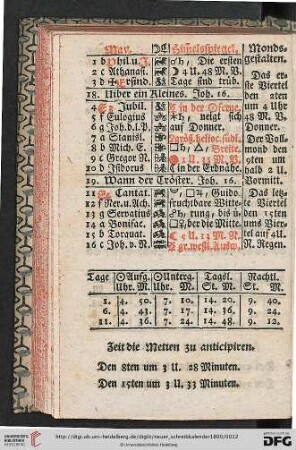 May. Himelsspiegel. Monds-
1 b Phil. u. J. Die ersten gestalten.
2 c Athanas. 4 U. 48 M. V.
3 d Erfind. Tage sind trüb. Das er-
18. Uiber ein Kleines. Joh. 16. ste Viertel
4 Jubil. in der Osterve. den 2ten
5 f Eulogius neigt sich um 4 Uhr
6 g Joh. d. l. P. auf Donner. 48 M. V.
7 a Stanisl. größ. helioc. südl. Donner.
8 b Mich. E. Breite. Der Voll-
9 c Gregor N. 1 U. 15 M. V. mond den
10 d Isidorus in der Erdnähe. 9ten um
19. Wann der Tröster. Joh. 16. halb 2 U.
11 Cantat. Guido. Vormitt.
12 f Ner. u. Ach. fruchtbare Witte- Das letz-
13 g Servatius rung, bis ü- te Viertel
14 a Bonifac. ber die Mitte. den 15ten
15 b Torquat. U. 13 M. N. um 1 Vier-
16 c Joh. v. N. gr. westl. Ausw. tel auf 4 U.
N. Regen.
Tage ☉Aufg. ☉Unterg. Tagsl. Nachtl.
Uhr. M. Uhr. M. St. M. St. M.
1. 4. 50. 7. 10. 14. 20. 9. 40.
6. 4. 43. 7. 17. 14. 36. 9. 24.
11. 4. 36. 7. 24. 14. 48. 9. 12.
Zeit die Metten zu anticipiren.
Den 8ten um 3 U. 28 Minuten.
Den 15ten um 3 U. 33 Minuten.
http://digi.ub.uni-heidelberg.de/diglit/neuer_schreibkalender1800/0012
© Universitätsbibliothek Heidelberg
DFG